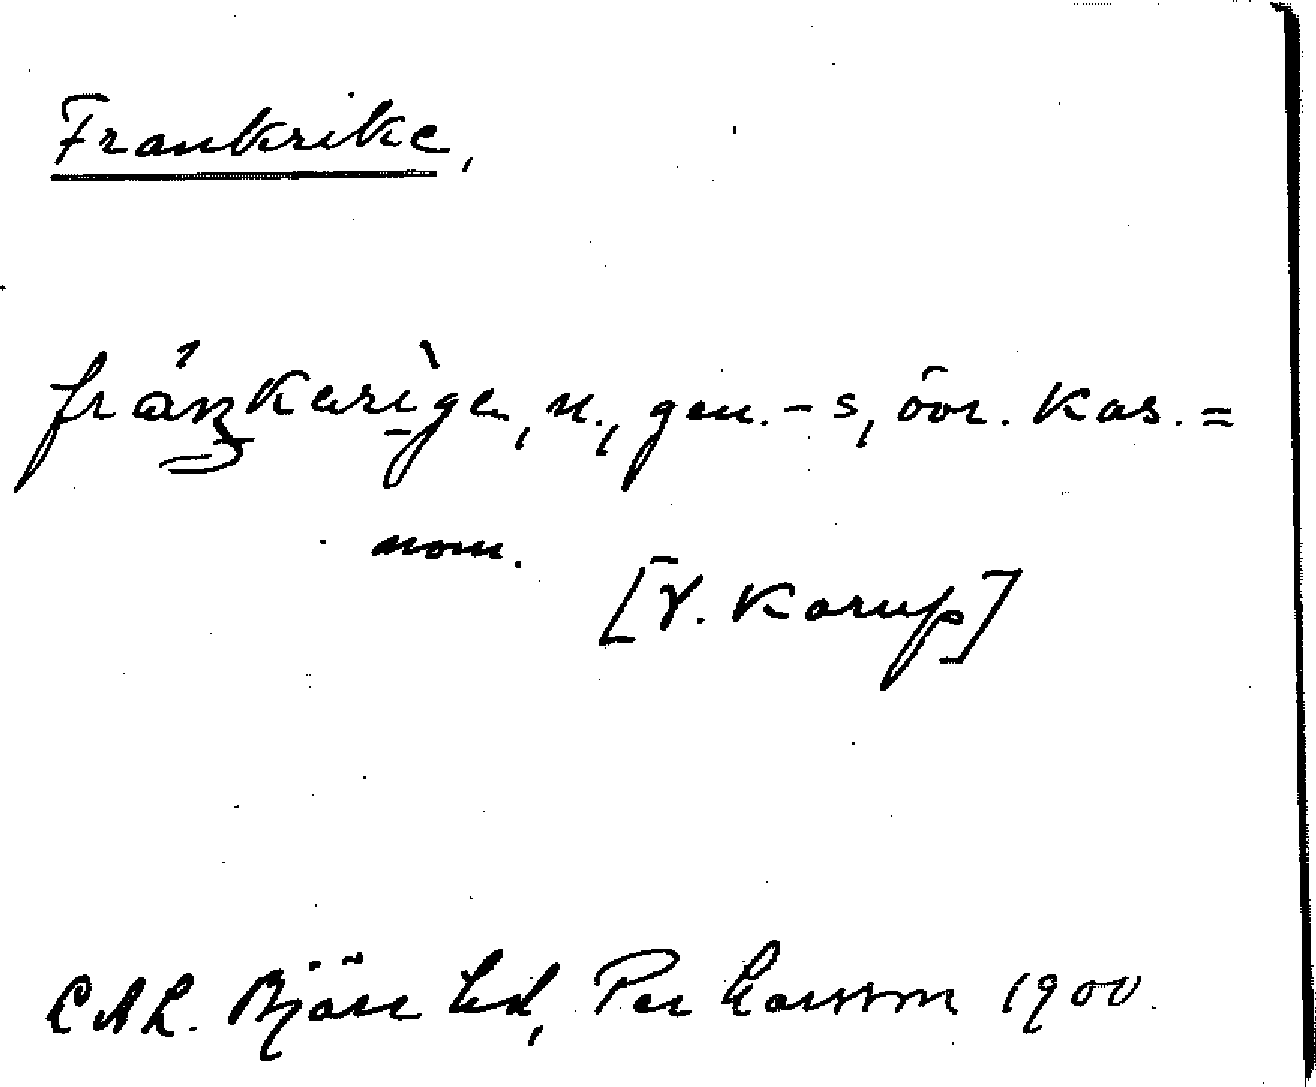 Frankrike,
fráŋkerìge, n., gen. -s, övr. kas. =
nom.
[V. Karup]
Per Larsson 1900.